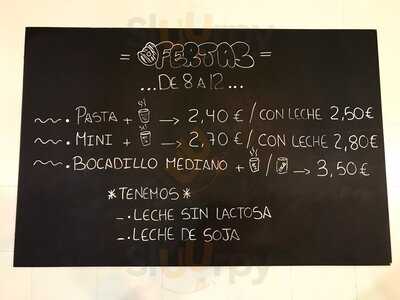 = OFERTAS =
...DE 8 A 12...
. PASTA + → 2,40 € / CON LECHE 2,50€
. MINI + → 2,70 € / CON LECHE 2,80€
. BOCADILLO MEDIANO + / → 3,50€
*TENEMOS*
-. LECHE SIN LACTOSA
-. LECHE DE SOJA
sluurpy
sluurpy